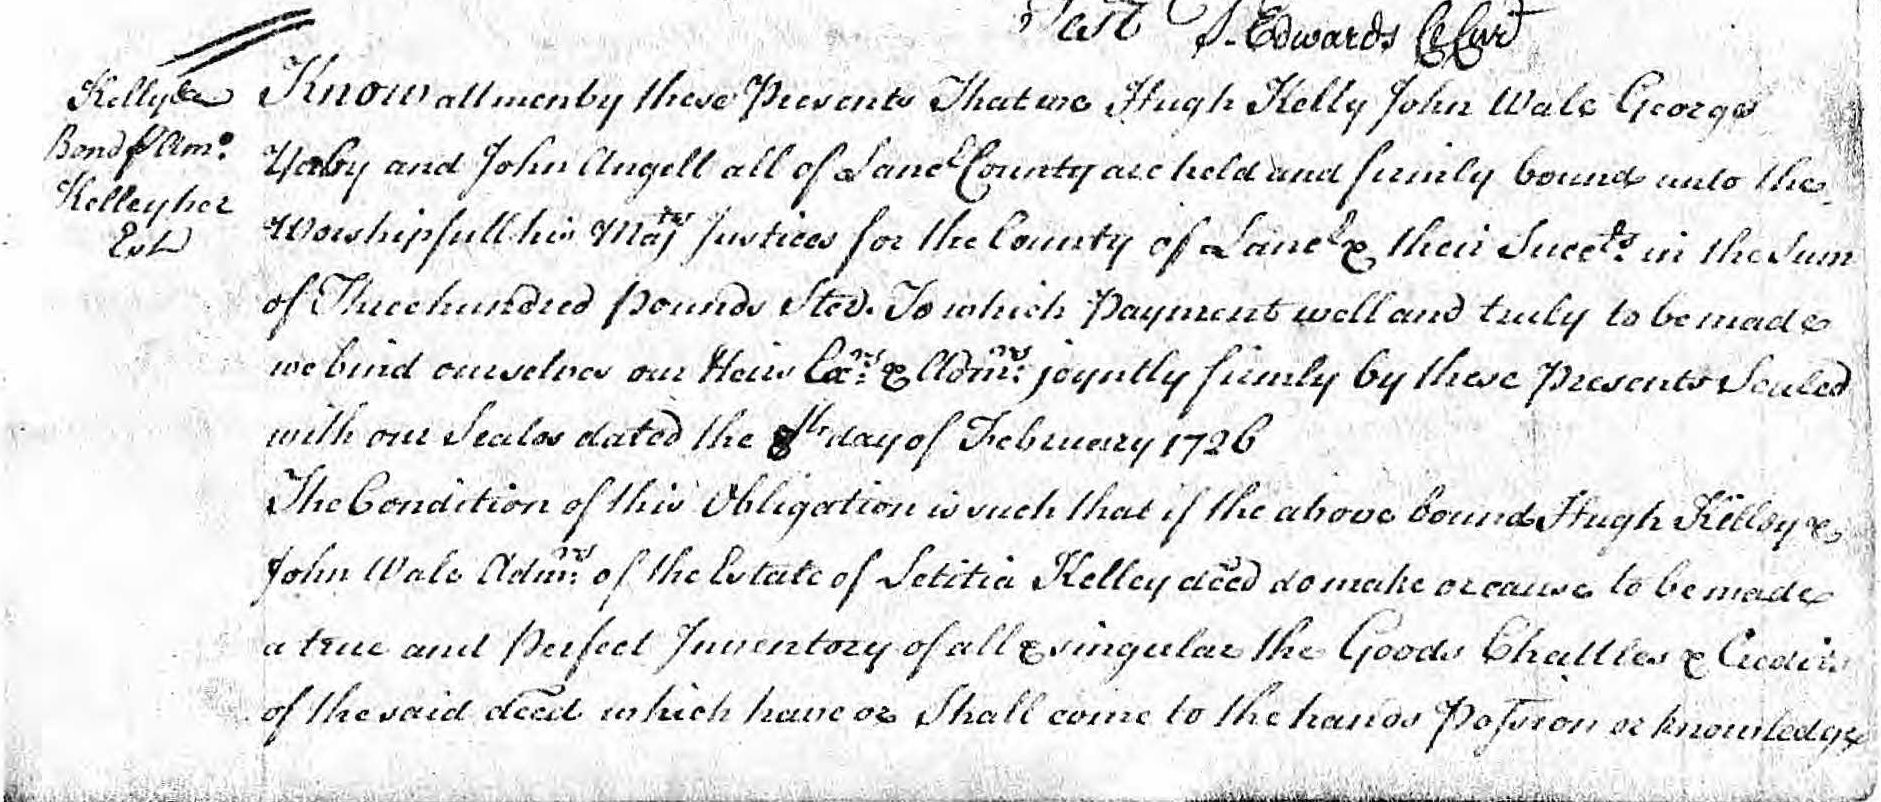 Test T. Edwards Cl Cur
Kelly &c
Bond p Adm.
Kelley her
Est
Know all men by these Presents That we Hugh Kelly John Wale George
Yerby and John Angell all of Lanc.r County are held and firmly bound unto the
Worshipfull his Maj.tys Justices for the County of Lanc.r & their Succ.rs in the Sum
of Three hundred pounds Ster. To which Payment well and truly to be made
we bind ourselves our Heirs Ex.rs & Adm.rs joyntly firmly by these Presents Sealed
with our Seales dated the 8th day of February 1726
The Condition of this Obligation is such that if the above bound Hugh Kelley &
John Wale Adm.rs of the Estate of Letitia Kelley deced do make or cause to be made
a true and Perfect Inventory of all & singular the Goods Chattles & Credits
of the said deced which have or Shall come to the hands Possion or knowledge